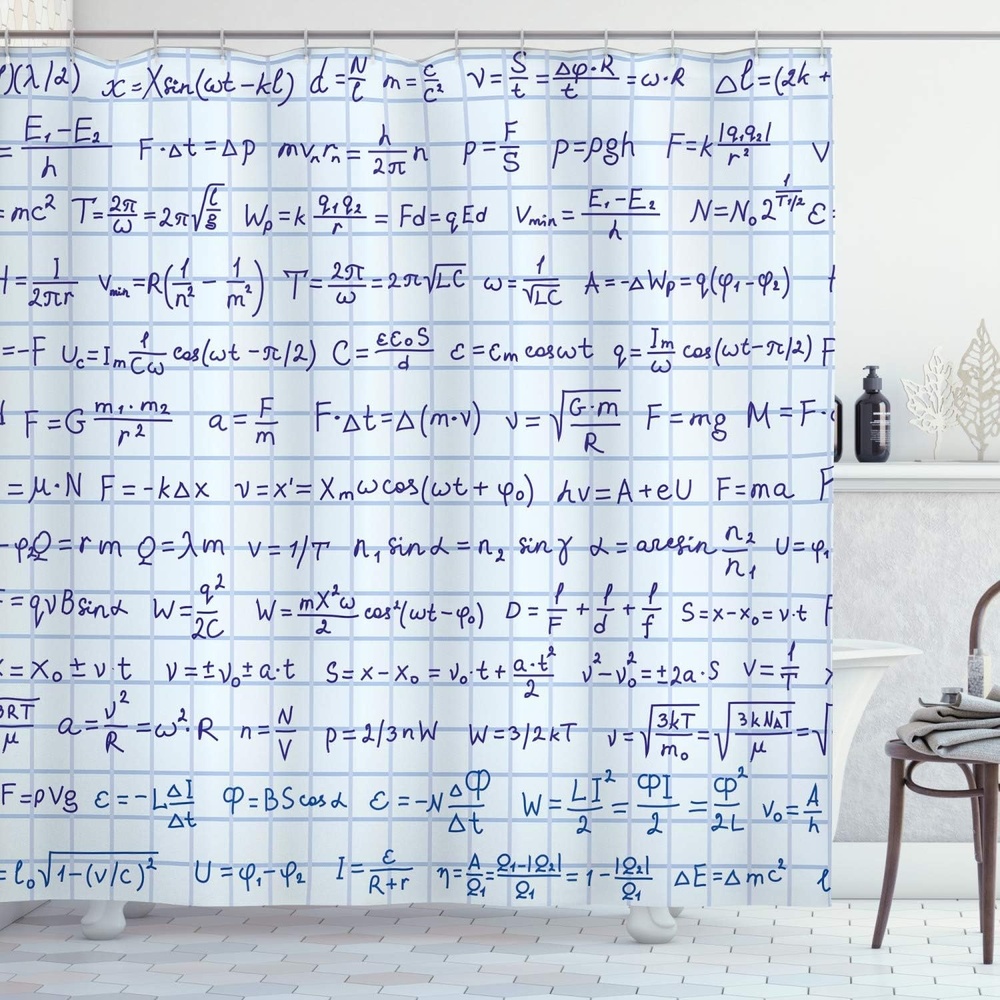 )(λ/2) x=Xsin(ωt-kl) d=N/l m=c/c² v=S/t=Δφ·R/t=ω·R Δl=(2k+
=E₁-E₂/h F·Δt=Δp mvₙrₙ=h/2π n p=F/S p=ρgh F=k|q₁q₂|/r² V
=mc² T=2π/ω=2π√(l/g) Wₚ=k q₁q₂/r=Fd=qEd Vmin=E₁-E₂/h N=N₀2^(1/T1/2) ε=
=I/2πr Vmin=R(1/n²-1/m²) T=2π/ω=2π√LC ω=1/√LC A=-ΔWp=q(φ₁-φ₂)
=-F Uc=Im 1/Cω cos(ωt-π/2) C=εε₀S/d ε=εm cosωt q=Im/ω cos(ωt-π/2) F
F=G m₁·m₂/r² a=F/m F·Δt=Δ(m·v) v=√(G·m/R) F=mg M=F·
=μ·N F=-kΔx v=x'=Xmωcos(ωt+φ₀) hv=A+eU F=ma F
-φ₂ Q=rm Q=λm v=1/T n₁sinα=n₂sinγ α=arcsin n₂/n₁ U=φ₁
=qvBsinα W=q²/2C W=mX²ω/2 cos²(ωt-φ₀) D=1/F+1/d+1/f S=x-x₀=v·t F
=X₀±v·t v=±v₀±a·t S=x-x₀=v₀·t+a·t²/2 v²-v₀²=±2a·S V=1/T
3RT/μ a=v²/R=ω²·R n=N/V p=2/3nW W=3/2kT v=√(3kT/m₀)=√(3kNAT/μ)=√
F=ρVg ε=-LΔI/Δt Φ=BScosα ε=-NΔΦ/Δt W=LI²/2=ΦI/2=Φ²/2L v₀=A/h
=l₀√(1-(v/c)²) U=φ₁-φ₂ I=ε/R+r η=A/Q₁=Q₁-|Q₂|/Q₁=1-|Q₂|/Q₁ ΔE=Δmc² l